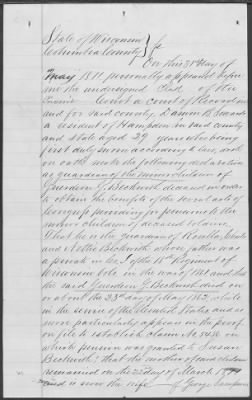 State of Wisconsin
Columbia County } ss
On this 31st day of
May 1871 personally appeared before
me the undersigned Clerk of the
Circuit Court a court of Record in
and for said county
a resident of Hampden in said county
and State aged 29 years who being
first duly sworn according to law, doth
on oath make the following declaration
as guardian of the minor children of
Guerdon G. Beckwith deceased in order
to obtain the benefit of the several acts of
Congress providing for pensions to the
minor children of deceased soldiers
That he is the guardian of
and Nettie Beckwith whose father was
a private in Co. of the 18th Regiment of
Wisconsin Vols. in the war of 1861 and that
the said Guerdon G. Beckwith died on
or about the 23rd day of May 1862, while
in the service of the United States and as
more particularly appear in the proof
on file to establish claim No.
which pension was granted to Susan
Beckwith; that the mother of said children
remarried on the day of March
and is now the wife of George